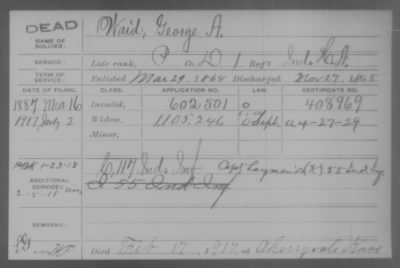 DEAD
NAME OF SOLDIER: Waid, George A.
SERVICE: Late rank, P Co D, 1 Reg't Ind. H.A.
TERM OF SERVICE: Enlisted Mar 29, 1864 Discharged Nov 27, 1865
DATE OF FILING CLASS. APPLICATION NO. LAW. CERTIFICATE NO.
1887 Mar 16 Invalid, 602501 o 408969
1917 July 2 Widow, 1105.246 a 4-27-29
Minor,
1-23-18 C, 117 Ind. Inf Capt Layman's 55 Ind Inf
ADDITIONAL SERVICES: 2-5-18 I 55 Ind Inf
REMARKS:
Died Feb 17, 1917, at Cherryvale Kans